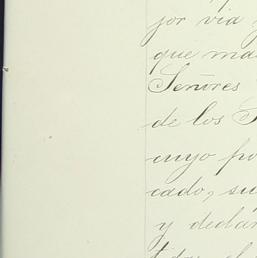 jor via
que ma
Señores
de los
cuyo po
cado, su
y declar